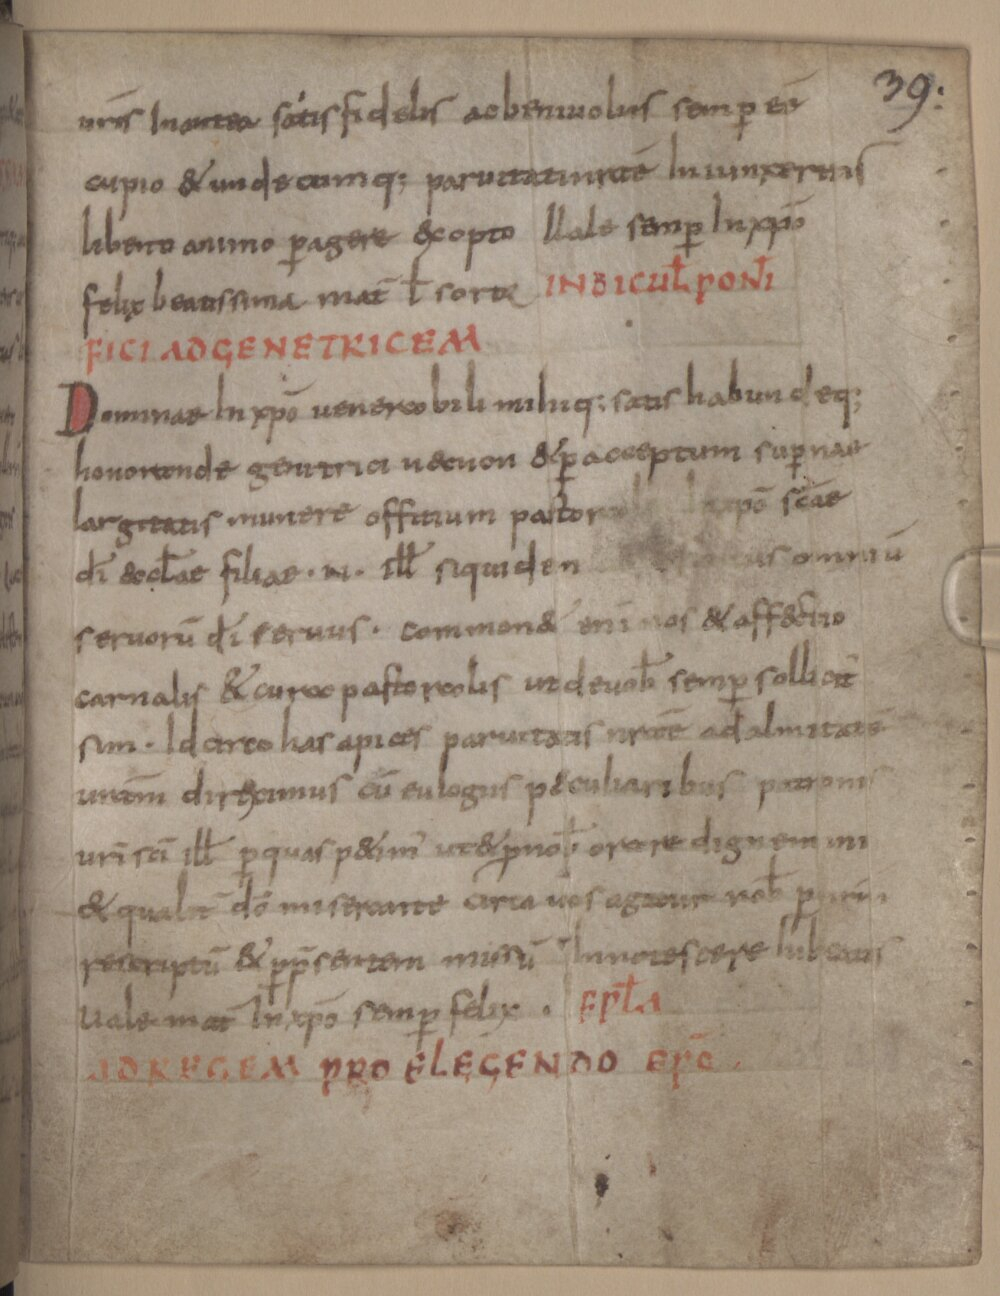 39:
uris In antea satis fidelis ac beniuolus semp̄ eē
cupio & undecumq; paruitati nrāe Iniunxeritis
libento animo p̄agere exopto Uale semp̄ In xp̄o
felix beatissima mat̄ ł soror INDICUŁ PONTI
FICI AD GENETRICEM
Dominae In xp̄o uenerabili mihiq; satis habundeq;
honorande genitrici necnon & p̄ acceptum sup̄nae
largitatis munere offitium pastor xp̄o scāe
dī aeccłae filiae · N · ilł siquidem omniū
seruorū dī seruus · commonet enī nos & affectio
carnalis & cura pastoralis ut de uob̄ semp̄ solliciti
sim · Idcirco has apices paruitatis nrāe ad almitatē
urām direximus cū eulogiis peculiaribus patronis
urī scī ilł p̄ quas petim̄ ut & p̄ nob̄ orare dignemini
& qualit̄ dō miserante circa uos agatur nob̄ p̄
rescriptū & p̄ p̄sentem missū Innotescere Iubeatis
Uale mat̄ In xp̄o semp̄ felix · EPŁA
AD REGEM PRO ELEGENDO EPŌ ·